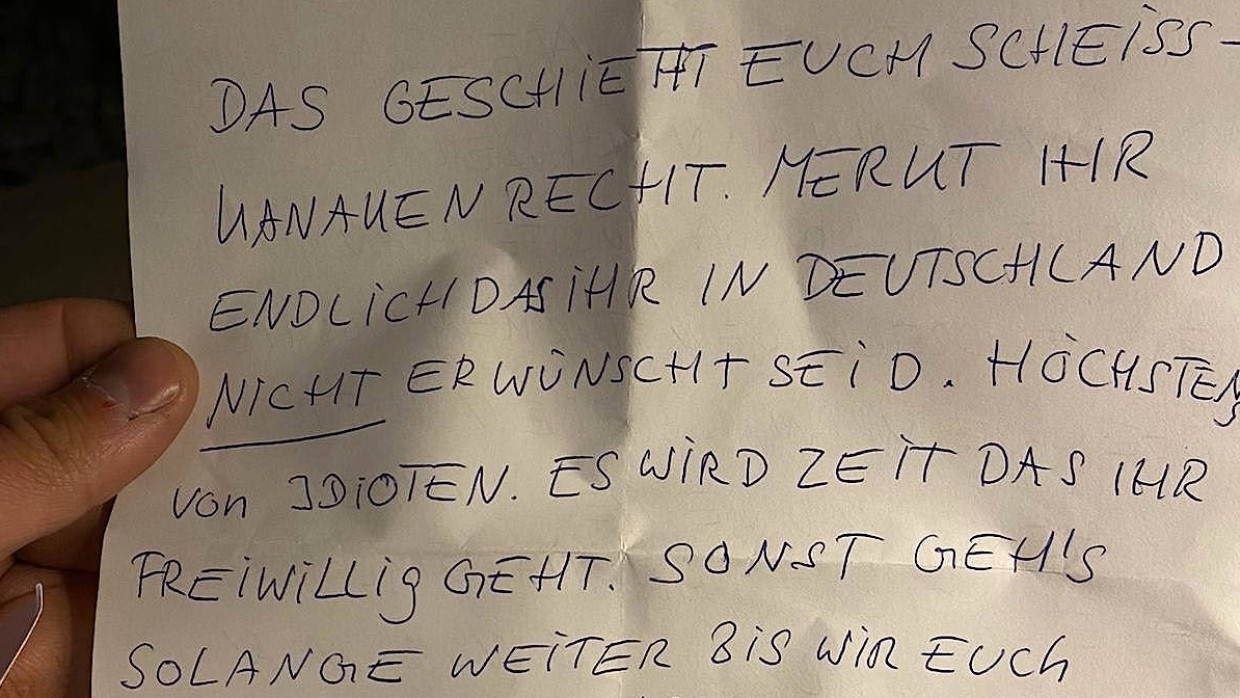 DAS GESCHIEHT EUCH SCHEISS-
KANAKEN RECHT. MERKT IHR
ENDLICH DAS IHR IN DEUTSCHLAND
NICHT ERWÜNSCHT SEID. HÖCHSTENS
von IDIOTEN. ES WIRD ZEIT DAS IHR
FREIWILLIG GEHT. SONST GEH'S
SOLANGE WEITER BIS WIR EUCH